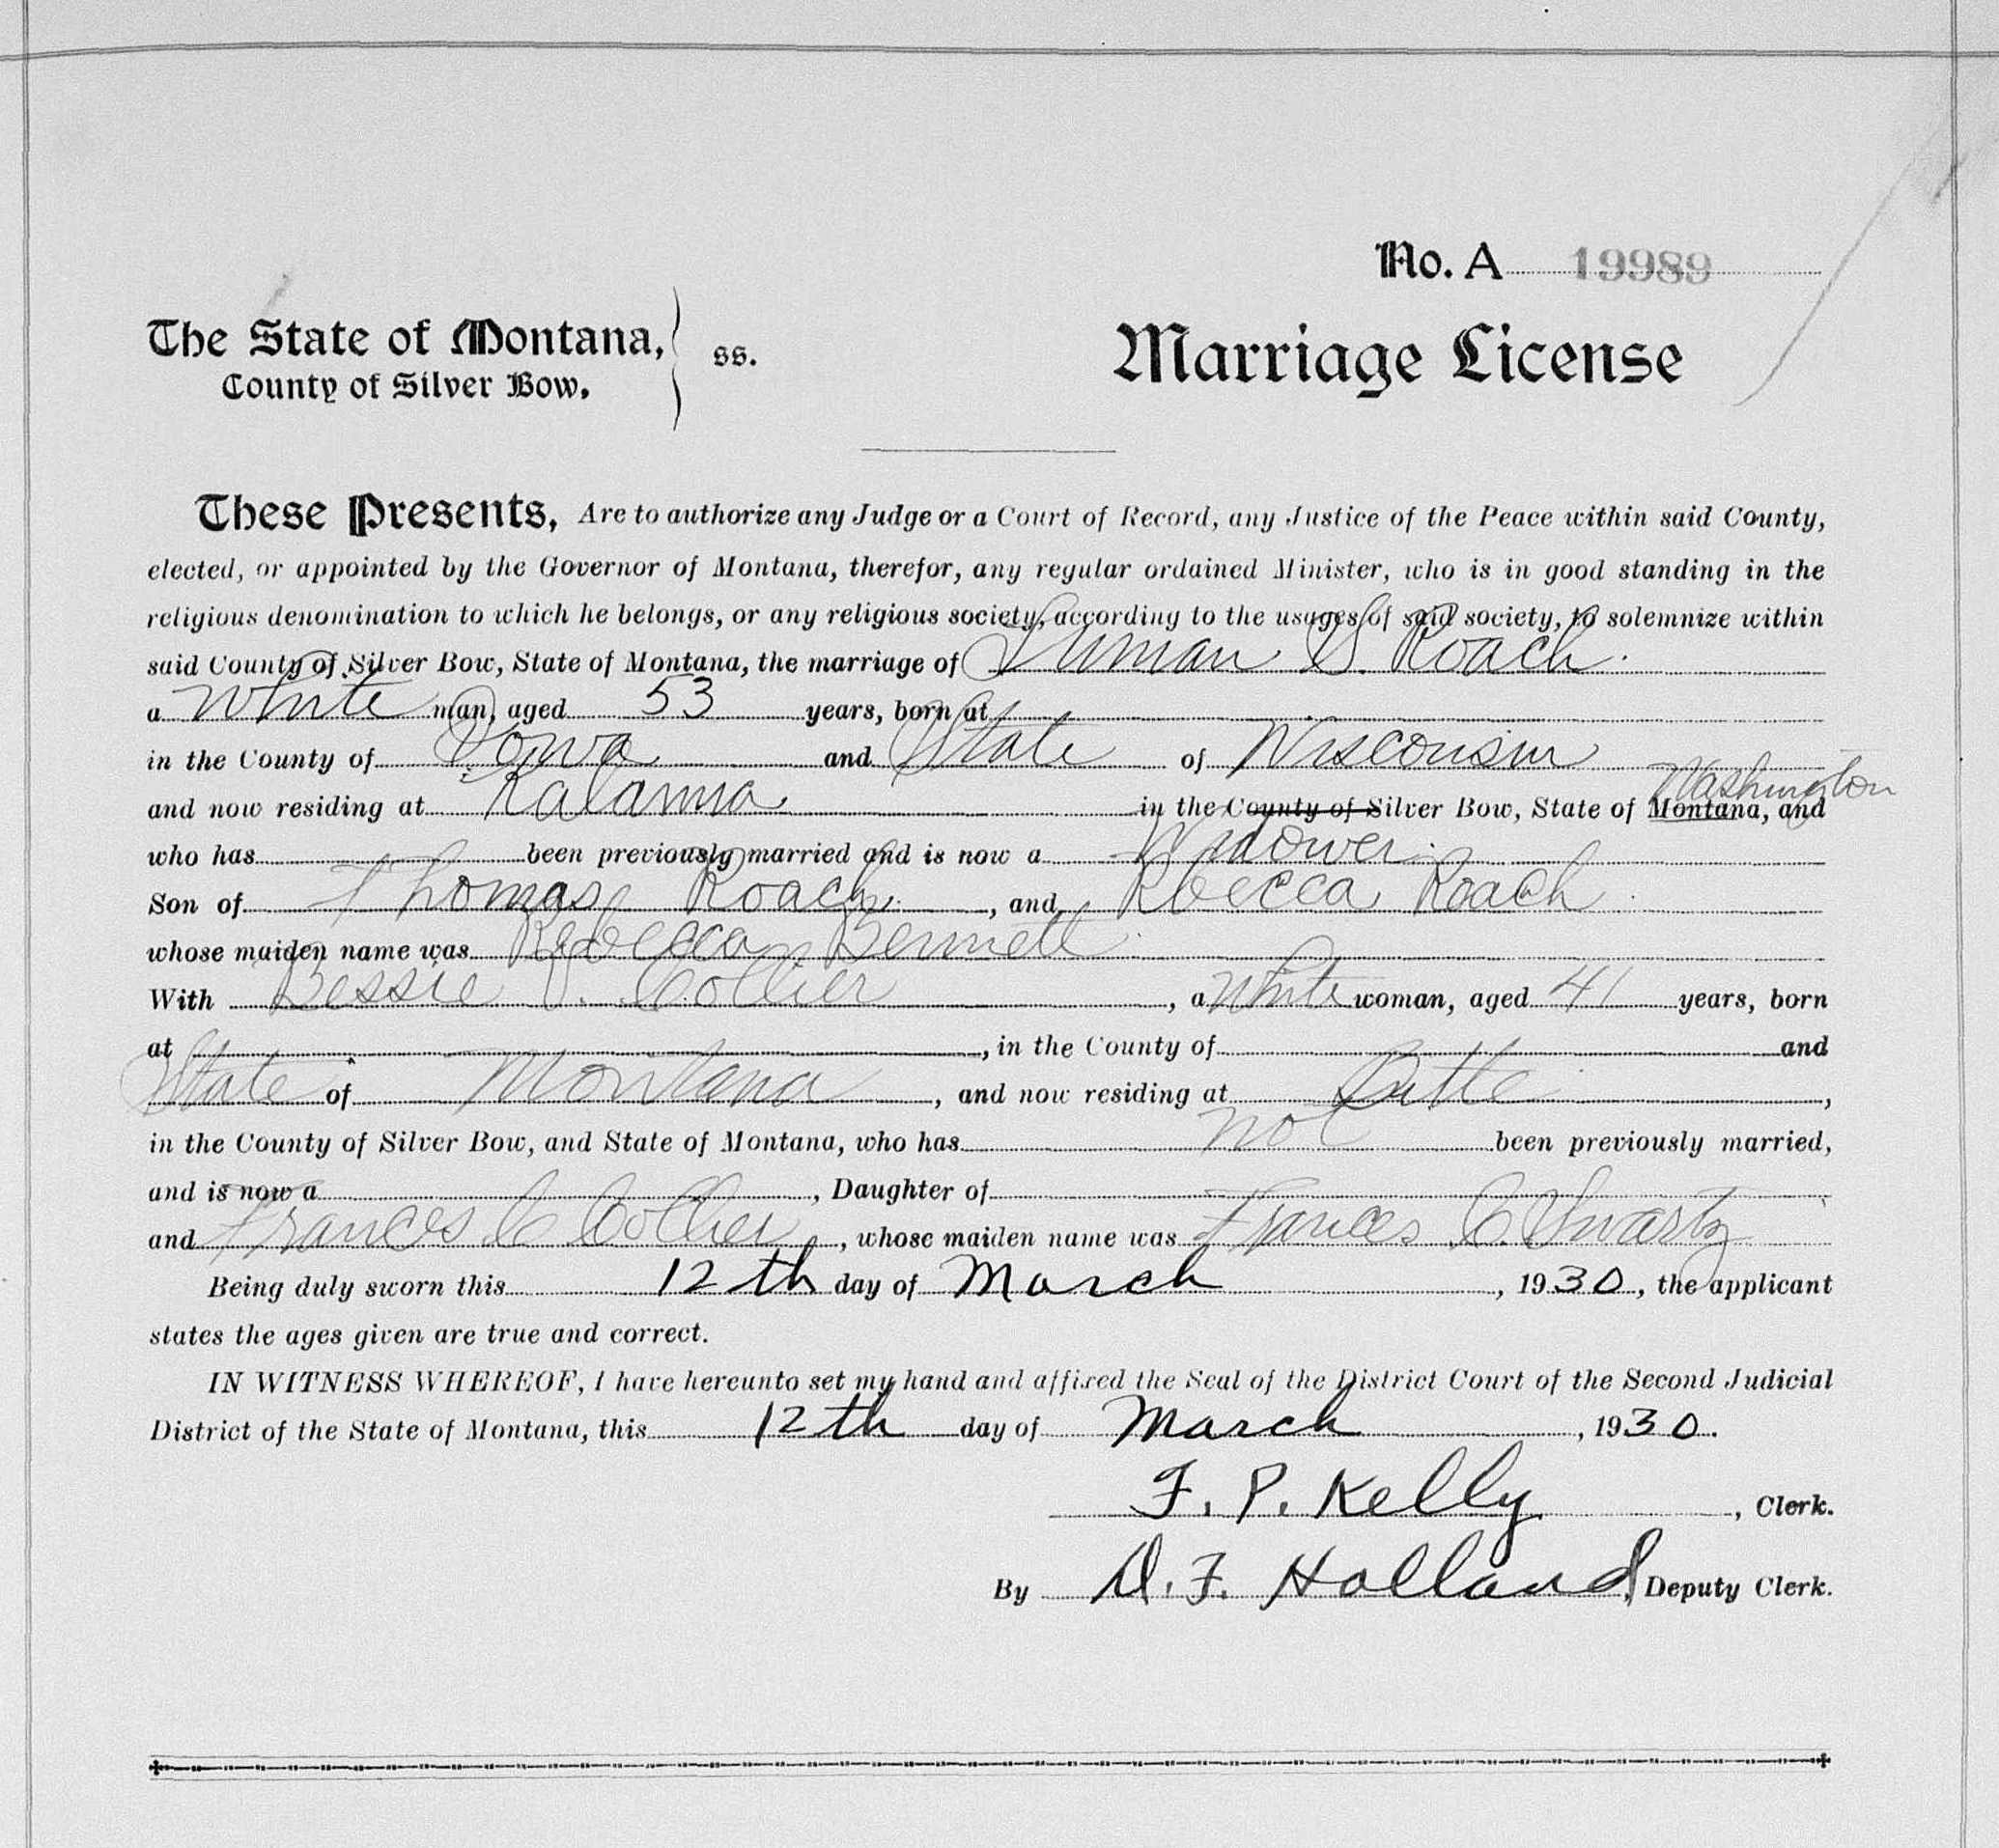 No. A 19989
The State of Montana, ss. Marriage License
County of Silver Bow.
These Presents, Are to authorize any Judge or a Court of Record, any Justice of the Peace within said County,
elected, or appointed by the Governor of Montana, therefor, any regular ordained Minister, who is in good standing in the
religious denomination to which he belongs, or any religious society, according to the usages of said society, to solemnize within
said County of Silver Bow, State of Montana, the marriage of S. Roach
a White man, aged 53 years, born at
in the County of Iowa and State of Wisconsin
Washington
and now residing at Kalama in the County of Silver Bow, State of Montana, and
who has been previously married and is now a Widower
Son of Thomas Roach, and Rbecca Roach
whose maiden name was Rebecca Bennett
With Bessie V. Collier, a White woman, aged 41 years, born
at , in the County of and
State of Montana, and now residing at Butte,
in the County of Silver Bow, and State of Montana, who has not been previously married,
and is now a , Daughter of
and Frances C Collier, whose maiden name was Frances C. Swartz
Being duly sworn this 12th day of March, 1930, the applicant
states the ages given are true and correct.
IN WITNESS WHEREOF, I have hereunto set my hand and affixed the Seal of the District Court of the Second Judicial
District of the State of Montana, this 12th day of March, 1930.
F. P. Kelly, Clerk.
By D. F. Holland, Deputy Clerk.